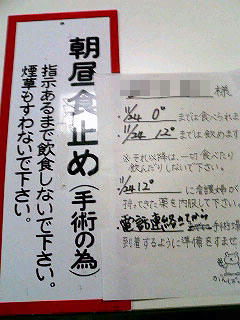 朝昼食止め(手術の為)
指示あるまで飲食しないで下さい。
煙草もすわないで下さい。
様
・11/24 0°までは食べられます
・11/24 12°までは飲めます
※それ以降は、一切食べたり
飲んだりしないで下さい。
11/24 12°に看護婦が
持ってきた薬を内服して下さい。
電話連絡きてから手術場
到着するように準備をすませ